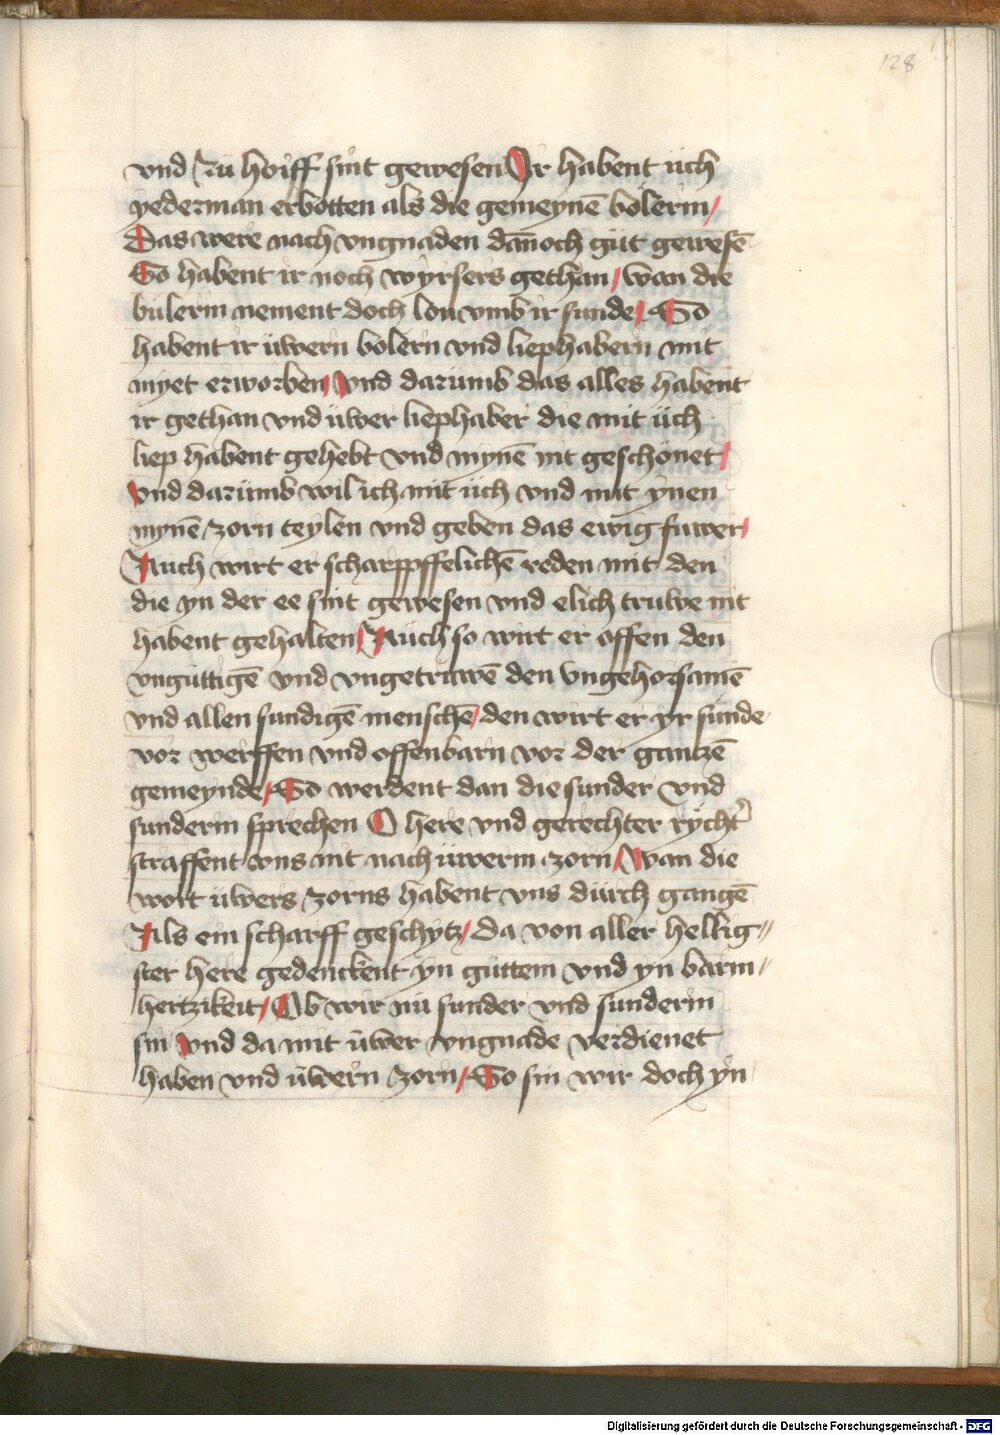 128
vnd zu hoiff sint gewesen Ir habent üch
yederman erbotten als die gemeynē bölerin /
Das were nach vngnaden dañoch güt gewesē
So habent ir noch wyrsers gethan / wan die
bülerin nement doch lon vmb ir sunde / So
habent ir üwern bölern vnd liephabern mit
myet erworben / vnd darümb das alles habent
ir gethan vnd üwer liephaber die mit üch
liep habent gehebt vnd mynē nit geschönet /
vnd darümb wil ich mit üch vnd mit ynen
mynē zorn teylen vnd geben das ewig fuwer /
Auch wirt er scharppffelichē reden mit den
die yn der ee sint gewesen vnd elich truwe nit
habent gehalten / Auch so wirt er offen den
vngüttigē vnd vngetruwē den vngehorsamē
vnd allen sundigē menschē / den wirt er yr sünde
vor werffen vnd offenbarn vor der gantzē
gemeynde / So werdent dan die sunder vnd
sunderin sprechen O here vnd gerechter rycht'
straffent vns nit nach üwerm zorn / Wan die
wort üwers zorns habent vns dürch gangē
Als ein scharff geschytz / da von aller heilig//
ster here gedenckent yn güttem vnd yn barm//
hertzikeit / Ob wir nü sunder vnd sunderin
sin vnd da mit üwer vngnade verdienet
haben vnd üwern zorn / So sin wir doch yn
Digitalisierung gefördert durch die Deutsche Forschungsgemeinschaft - DFG